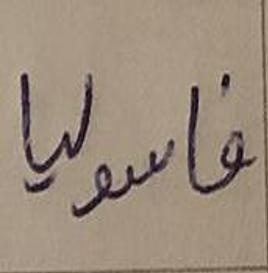 فاسوليا